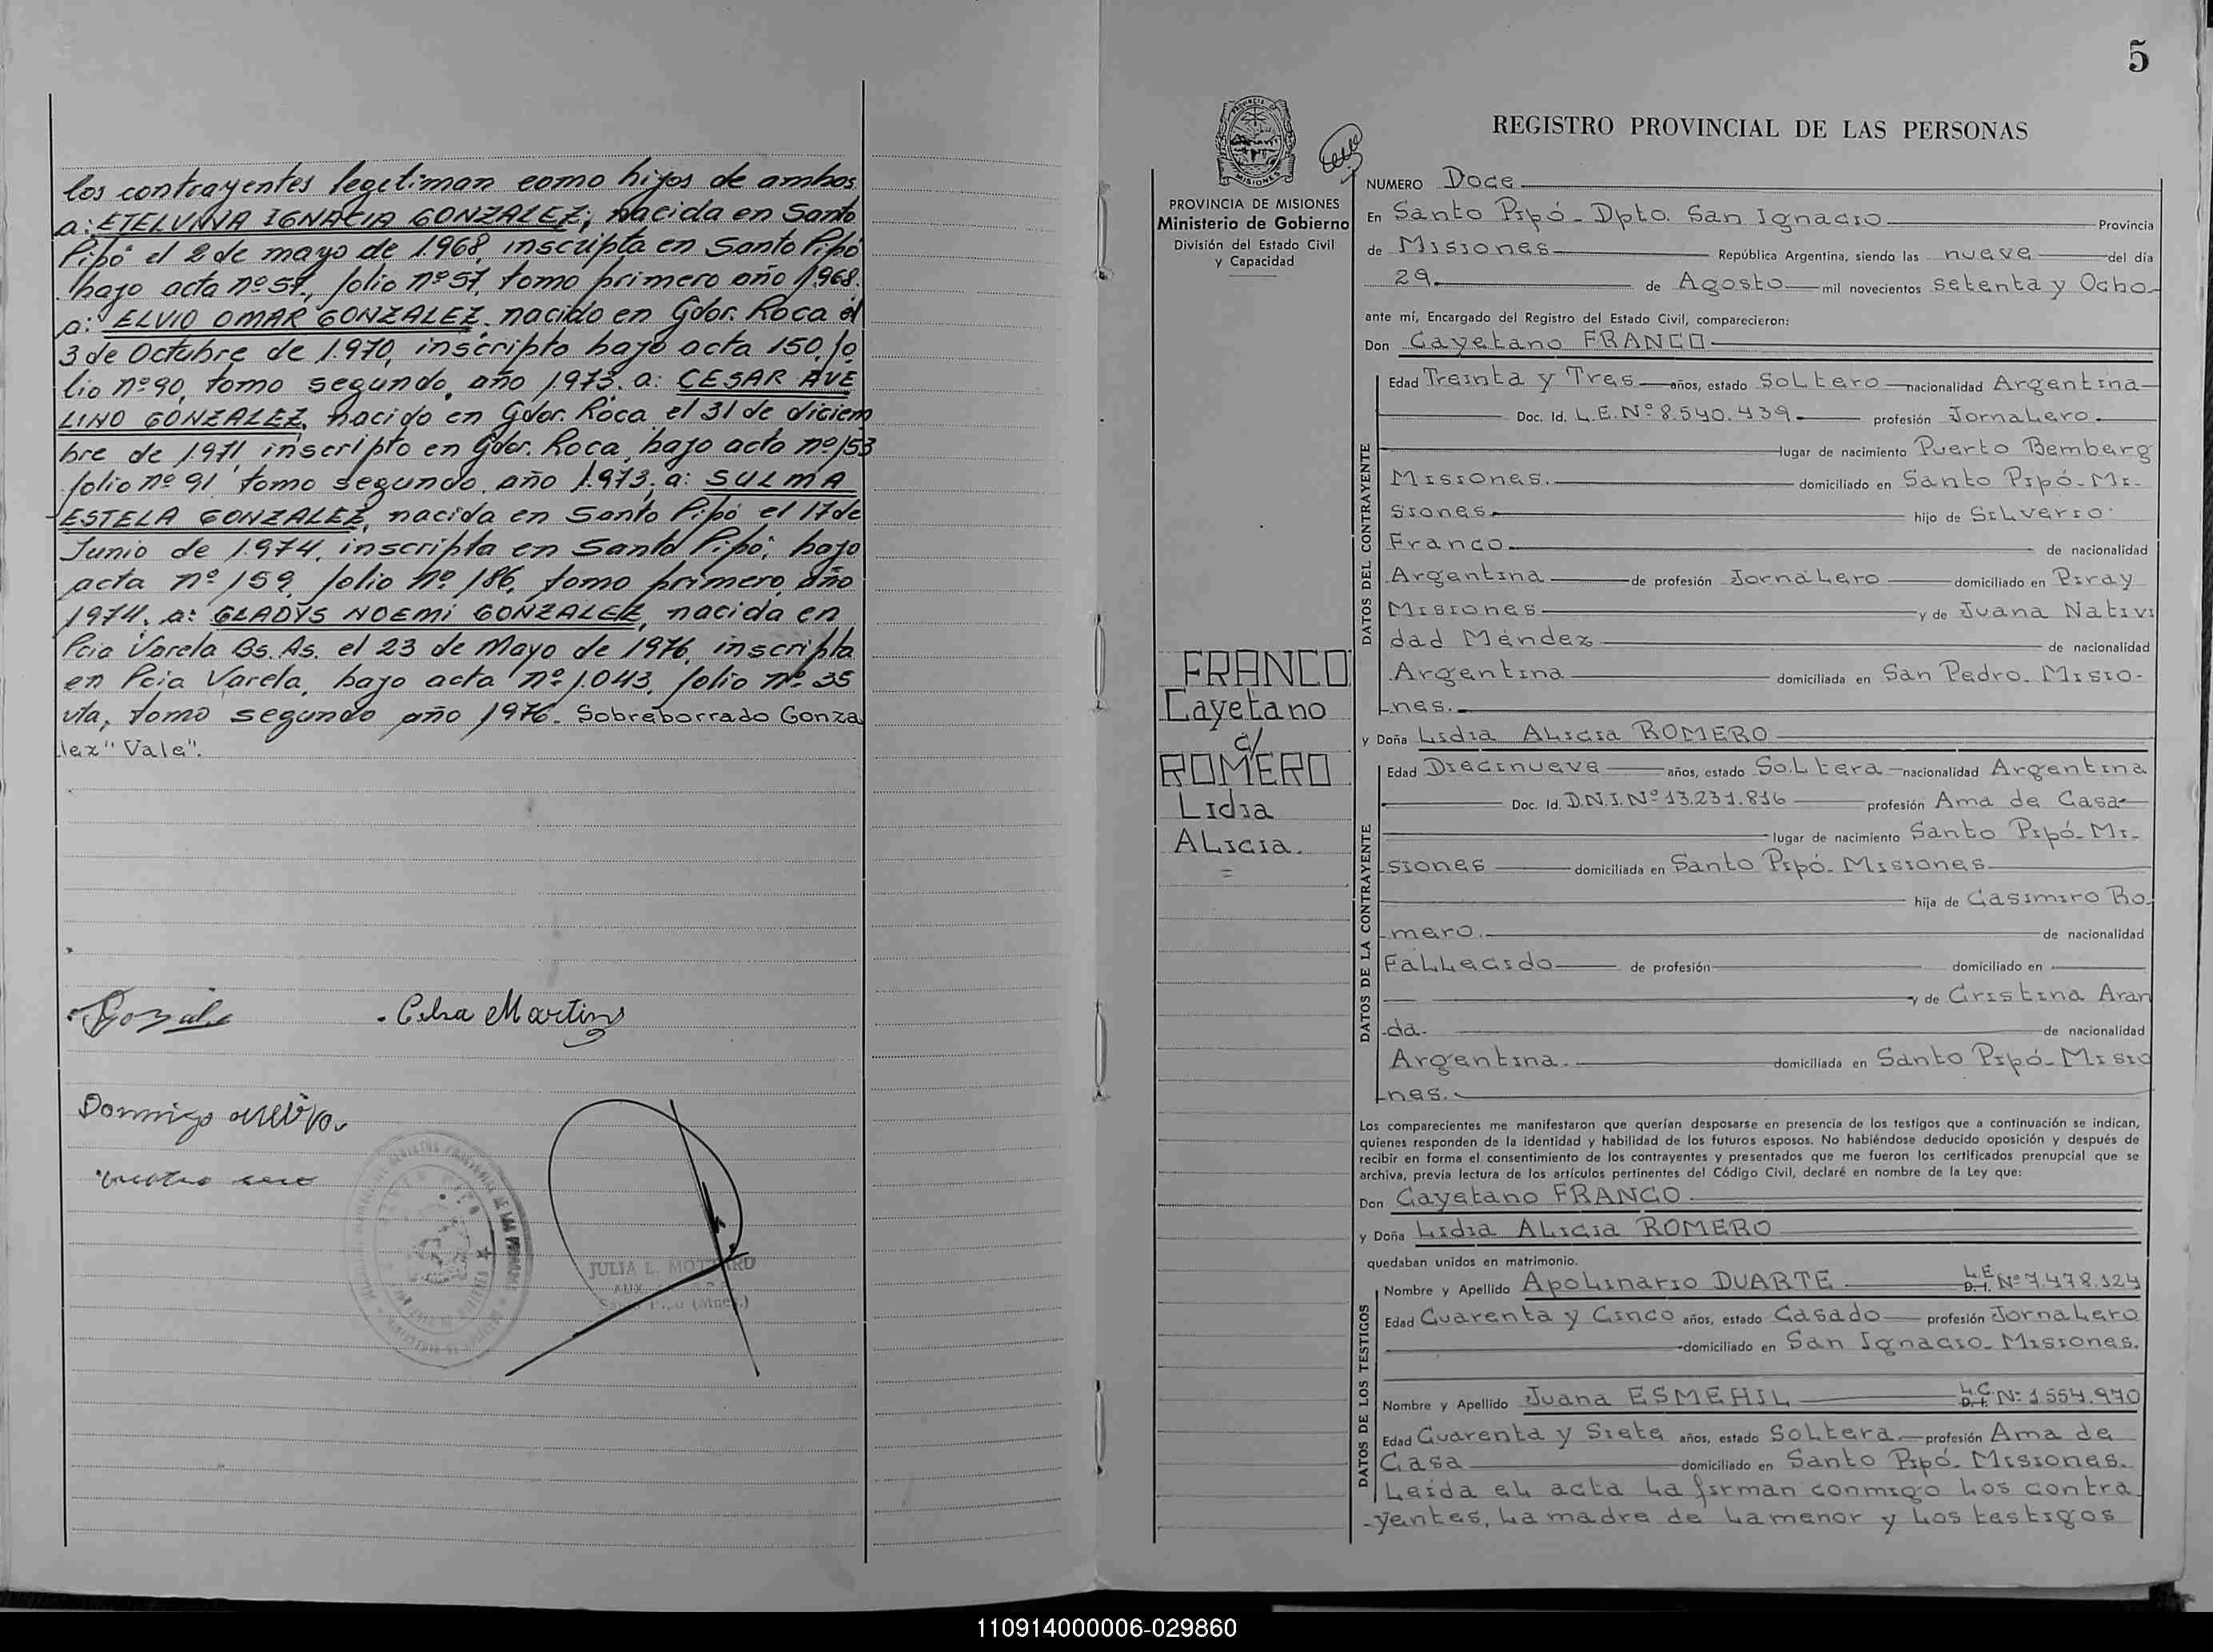 los contrayentes legitiman como hijos de ambos
a: ETELVINA IGNACIA GONZALEZ; nacida en Santo
Pipó el 2 de mayo de 1.968, inscripta en Santo Pipó
bajo acta nº 57, folio nº 57, tomo primero año 1.968.
a: ELVIO OMAR GONZALEZ, nacido en Gdor. Roca el
3 de Octubre de 1.970, inscripto bajo acta 150, fo
lio nº 90, tomo segundo, año 1973. a: CESAR AVE
LINO GONZALEZ, nacido en Gdor. Roca el 31 de diciem
bre de 1971 inscripto en Gdor. Roca, bajo acta nº 153
folio nº 91 tomo segundo, año 1.973; a: SULMA
ESTELA GONZALEZ, nacida en Santo Pipó el 17 de
Junio de 1.974, inscripta en Santo Pipó; bajo
acta nº 159, folio nº 186, tomo primero, año
1974. a: GLADYS NOEMI GONZALEZ, nacida en
Pcia Varela Bs. As. el 23 de Mayo de 1976, inscripta
en Pcia Varela, bajo acta nº 1.043, folio nº 35
vta, tomo segundo año 1976. Sobreborrado Gonza
lez "Vale".
Celsa Martins
Domingo
JULIA L. MOTTARD
5
REGISTRO PROVINCIAL DE LAS PERSONAS
PROVINCIA DE MISIONES
Ministerio de Gobierno
División del Estado Civil
y Capacidad
FRANCO
Cayetano
c/
ROMERO
Lidia
Alicia.
NUMERO Doce
En Santo Pipó - Dpto. San Ignacio Provincia
de Misiones República Argentina, siendo las nueve del día
29 de Agosto mil novecientos setenta y Ocho
ante mí, Encargado del Registro del Estado Civil, comparecieron:
Don Cayetano FRANCO
DATOS DEL CONTRAYENTE
Edad Treinta y Tres años, estado Soltero nacionalidad Argentina
Doc. Id. L.E. Nº 8.540.439 profesión Jornalero.
lugar de nacimiento Puerto Bemberg
Misiones. domiciliado en Santo Pipó - Mi-
siones hijo de Silverio
Franco de nacionalidad
Argentina de profesión Jornalero domiciliado en Piray
Misiones y de Juana Nativi
dad Méndez de nacionalidad
Argentina domiciliada en San Pedro - Misio-
nes.
y Doña Lidia Alicia ROMERO
DATOS DE LA CONTRAYENTE
Edad Diecinueve años, estado Soltera nacionalidad Argentina
Doc. Id. D.N.I. Nº 13.231.816 profesión Ama de Casa
lugar de nacimiento Santo Pipó - Mi-
siones domiciliada en Santo Pipó - Misiones
hija de Casimiro Ro
mero. de nacionalidad
Fallecido de profesión domiciliado en
y de Cristina Aran
da. de nacionalidad
Argentina. domiciliada en Santo Pipó - Misio
nes.
Los comparecientes me manifestaron que querían desposarse en presencia de los testigos que a continuación se indican,
quienes responden de la identidad y habilidad de los futuros esposos. No habiéndose deducido oposición y después de
recibir en forma el consentimiento de los contrayentes y presentados que me fueron los certificados prenupcial que se
archiva, previa lectura de los artículos pertinentes del Código Civil, declaré en nombre de la Ley que:
Don Cayetano FRANCO
y Doña Lidia Alicia ROMERO
quedaban unidos en matrimonio.
DATOS DE LOS TESTIGOS
Nombre y Apellido Apolinario DUARTE L.E. D.I. Nº 7.478.124
Edad Cuarenta y Cinco años, estado Casado profesión Jornalero
domiciliado en San Ignacio - Misiones.
Nombre y Apellido Juana ESMEHIL L.C. D.I. Nº 1.554.970
Edad Cuarenta y Siete años, estado Soltera profesión Ama de
Casa domiciliado en Santo Pipó - Misiones.
Leída el acta la firman conmigo los contra
yentes, la madre de la menor y los testigos
110914000006-029860